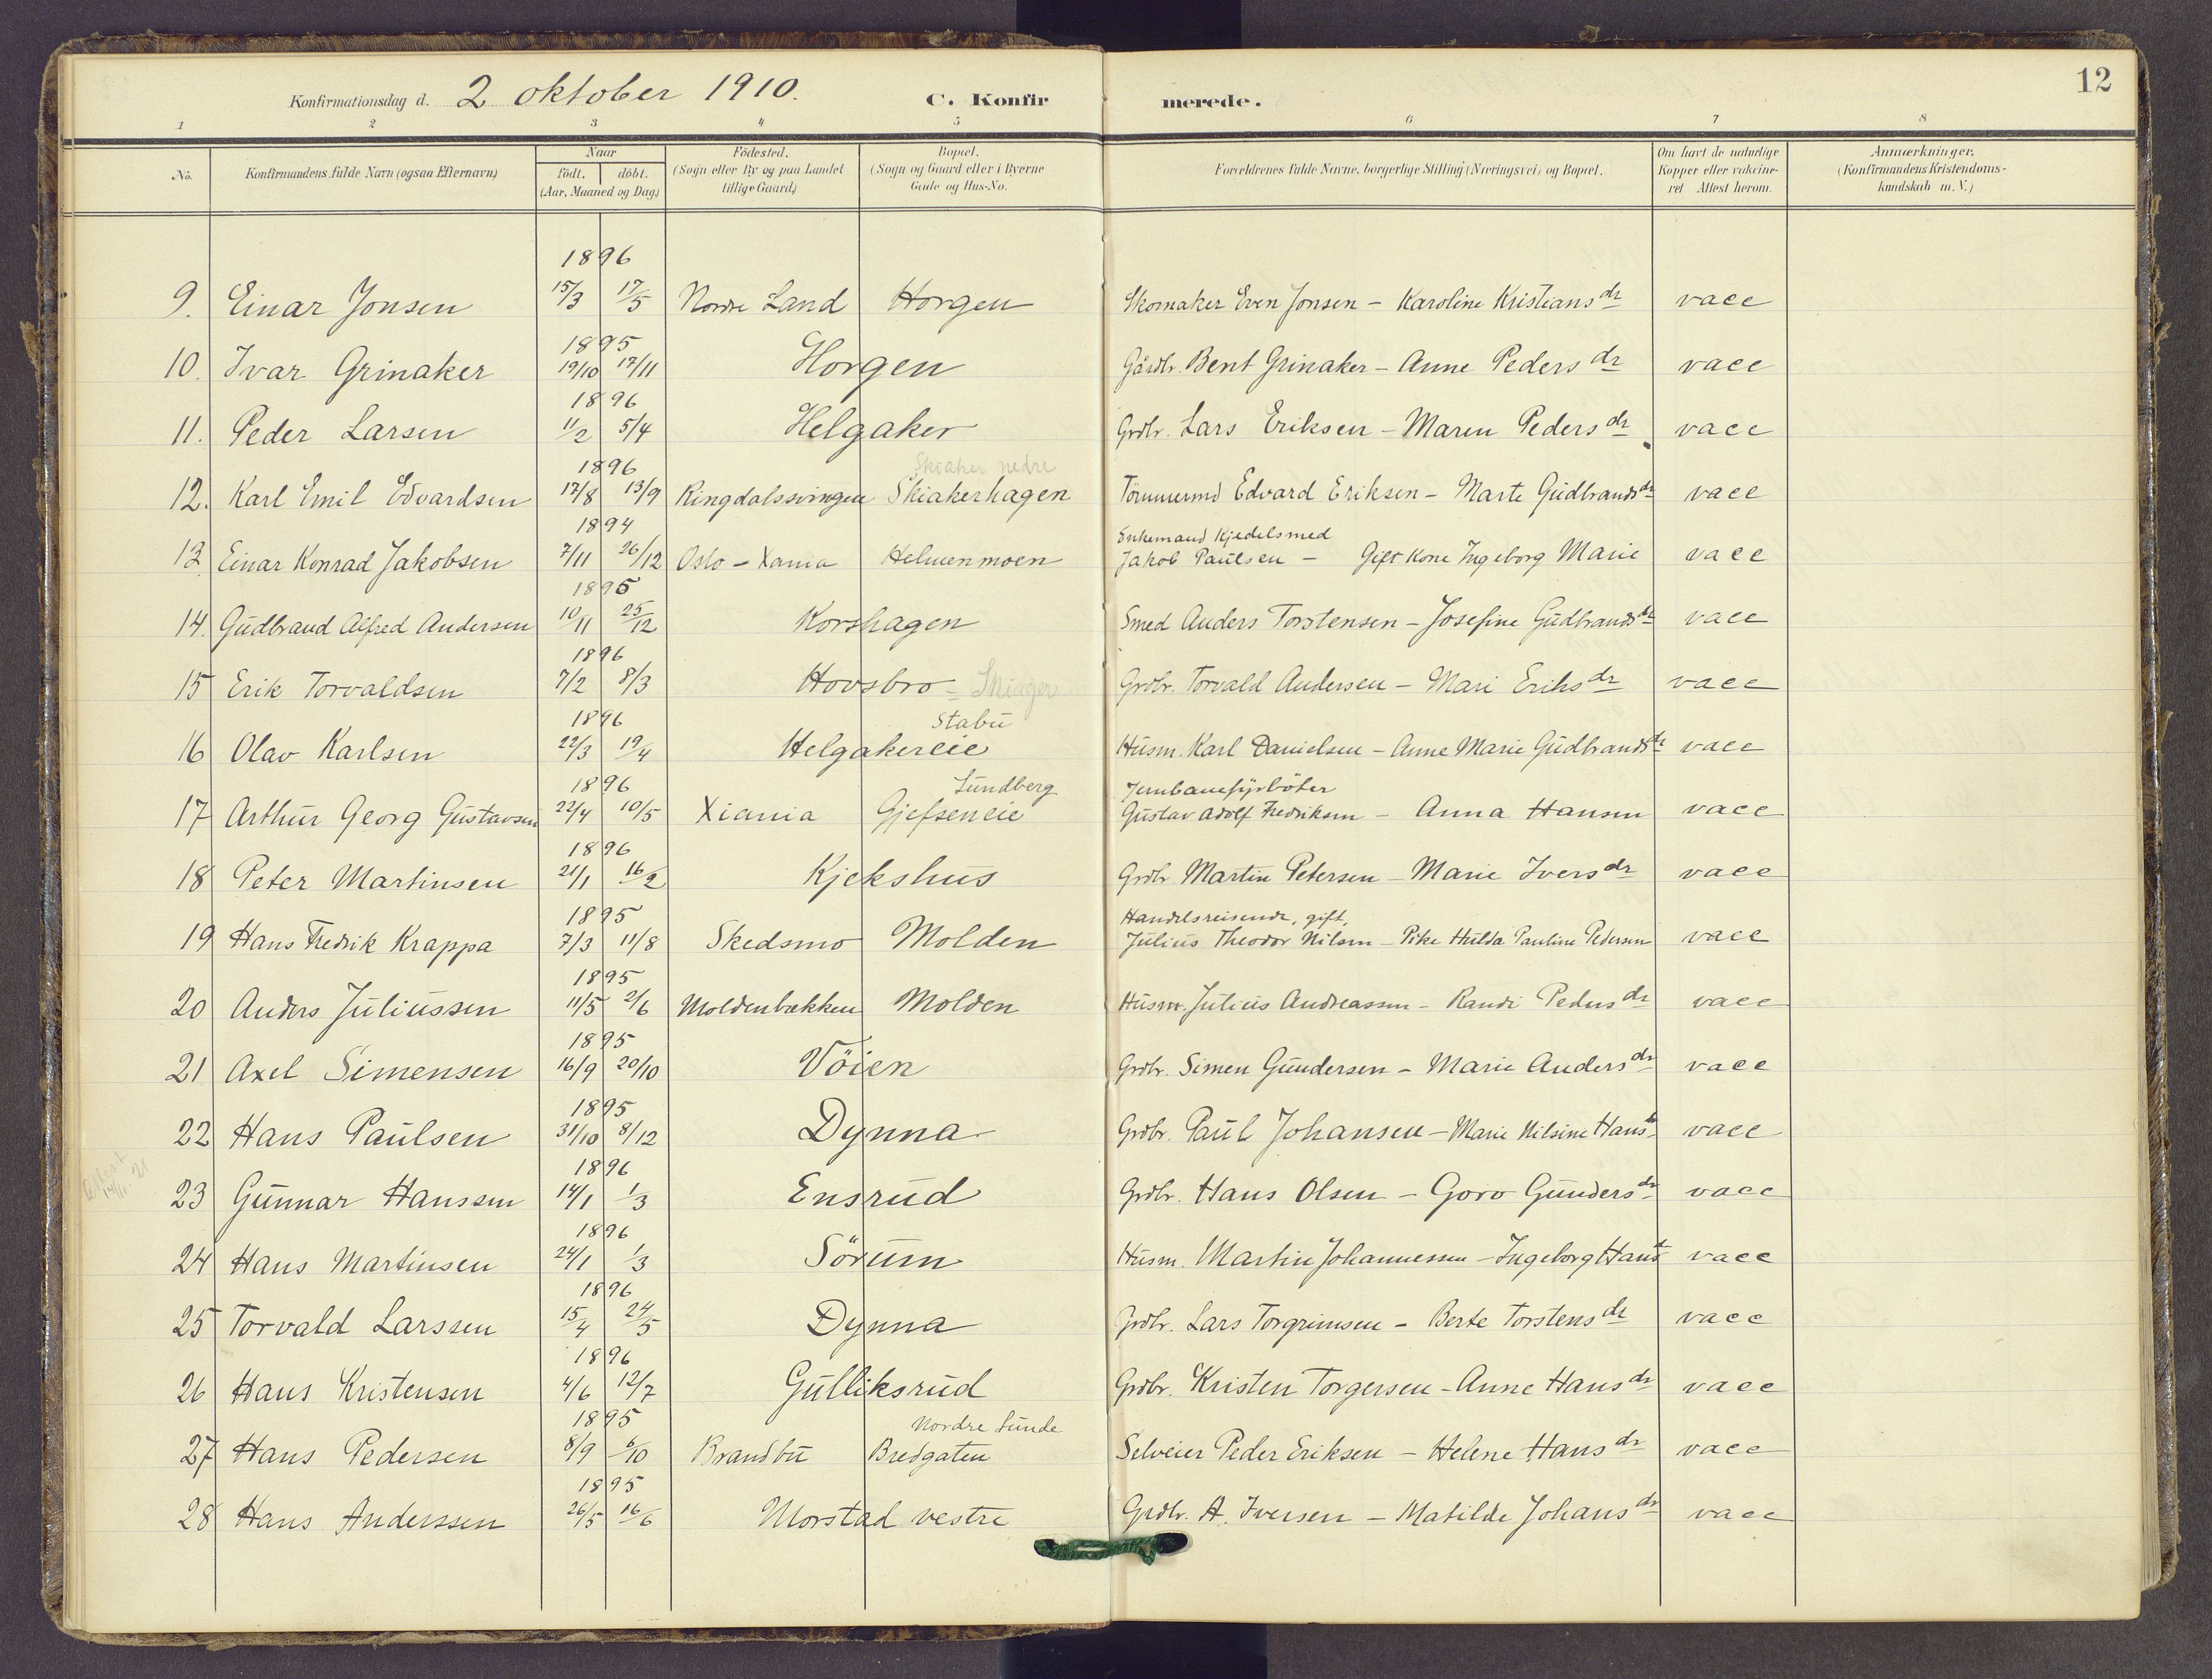 12
Konfirmationsdag d. 2 oktober 1910. C. Konfirmerede.
1 2 3 4 5 6 7 8
No. Konfirmandens fulde Navn (ogsaa Efternavn) Naar födt. döbt. (Aar, Maaned og Dag) Födested. (Sogn eller By og paa Landet tillige Gaard) Bopæl. (Sogn og Gaard eller i Byerne Gade og Hus-No. Forældrenes fulde Navne, borgerlige Stilling (Næringsvei) og Bopæl. Om havt de naturlige Kopper eller vakcineret Attest herom. Anmærkninger. (Konfirmandens Kristendomskundskab m. V.)
1896
9. Einar Jonsen 15/3 17/5 Nordre Land Horgen Skomaker Even Jonsen - Karoline Kristiansdr vacc
1895
10. Ivar Grinaker 19/10 17/11 Horgen Gårdbr. Bent Grinaker - Anne Pedersdr vacc
1896
11. Peder Larsen 11/2 5/4 Helgaker Grdbr. Lars Eriksen - Maren Pedersdr vacc
1896 Skiaker nedre
12. Karl Emil Edvardsen 17/8 13/9 Ringdalssvingen Skiakerhagen Tömmermd Edvard Eriksen - Marte Gudbrandsdr vacc
1894 Enkemand Kjedelsmed
13 Einar Konrad Jakobsen 7/11 26/12 Oslo - Xania Helmenmoen Jakob Paulsen - Gift Kone Ingeborg Marie vacc
1895
14. Gudbrand Alfred Andersen 10/11 25/12 Korshagen Smed Anders Torstensen - Josefine Gudbrandsdr vacc
1896
15 Erik Torvaldsen 7/2 8/3 Hovsbro - Grdbr. Torvald Andersen - Mari Eriksdr vacc
1896 Stabu
16 Olav Karlsen 22/3 19/4 Helgakereie Husm. Karl Danielsen - Anne Marie Gudbrandsdr vacc
1896 Lundberg Jernbanefyrböter
17 Arthur Georg Gustavsen 22/4 10/5 Xiania Gjefseneie Gustav Adolf Fredriksen - Anna Hansen vacc
1896
18 Peter Martinsen 21/1 16/2 Kjekshus Grdbr Martin Petersen - Marie Iversdr vacc
1895 Handelsreisende, gift,
19 Hans Fredrik Krappa 7/3 11/8 Skedsmo Molden Julius Theodor Nilsen - Pike Hulda Pauline Pedersen vacc
1895
20 Anders Juliussen 11/5 2/6 Moldenbækken Molden Husm. Julius Andreassen - Randi Pedersdr vacc
1895
21 Axel Simensen 16/9 20/10 Vöien Grdbr. Simen Gundersen - Marie Andersdr vacc
1895
22 Hans Paulsen 31/10 8/12 Dynna Grdbr. Paul Johansen - Marie Nilsine Hansdr vacc
1896
23 Gunnar Hanssen 14/1 1/3 Ensrud Grdbr. Hans Olsen - Goro Gundersdr vacc
1896
24 Hans Martinsen 24/1 1/3 Sörum Husm. Martin Johannessen - Ingeborg Hansdr vacc
1896
25 Torvald Larssen 15/4 24/5 Dynna Grdbr. Lars Torgrimsen - Berte Torstensdr vacc
1896
26 Hans Kristensen 4/6 12/7 Gulliksrud Grdbr. Kristen Torgersen - Anne Hansdr vacc
1895 Nordre Lunde
27 Hans Pedersen 8/9 6/10 Brandbu Bredgaten Selveier Peder Eriksen - Helene Hansdr vacc
1895
28 Hans Anderssen 26/5 16/6 Morstad vestre Grdbr. A. Iversen - Matilde Johansdr vacc